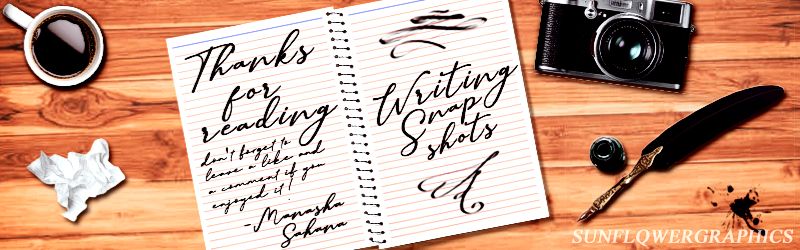 Thanks
for
reading
don't forget to
leave a like and
a comment if you
enjoyed it!
-Manasha
Sahana
Writing
Snap
shots
SUNFLOWERGRAPHICS